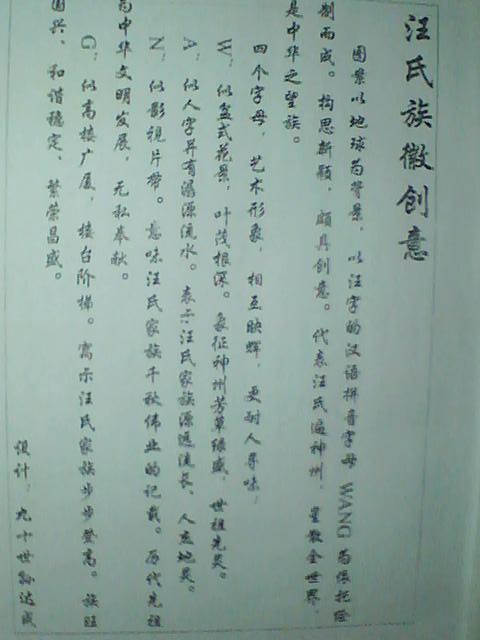 汪氏族徽创意
图案以地球为背景，以汪字的汉语拼音字母 WANG 为张挖绘
制而成。构思新颖，颇具创意。代表汪氏遍神州，星散全世界，
是中华之望族。
四个字母，艺术形象，相互映辉，更耐人寻味，
W：似盆式花景，叶茂根深。象征神州芳草绿盛，世祖先灵。
A：似人字并有溺源流水。表示汪氏家族源远流长、人杰地灵。
N：似影视片带。意味汪氏家族千秋伟业的记载。历代先祖
为中华文明发展，无私奉献。
G：似高楼广厦，楼台阶梯。寓示汪氏家族步步登高。族旺
国兴、和谐稳定、繁荣昌盛。
设计：九十世孙达成